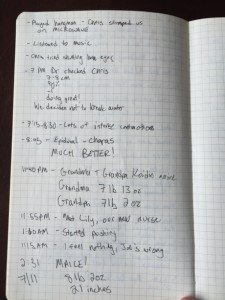 - Played hangman - Chris stumped us
on MICROWAVE
- Listened to music
- Chris tried shutting
- 7 PM Dr checked CHRIS
7-8 cm
90%
doing great!
We decided not to break water
- 7:15-8:30 - Lots of intense contractions
- 8:45 - Epidural - Charas
MUCH BETTER!
- Grandma + Grandpa
Grandma 7 lb 13 oz
Grandpa 7 lb 2 oz
11:55AM - Met Lily, our new nurse
1:00AM - Started pushing
1:15AM - I feel nothing,
2:31 MALE!
7/11 8 lb 2oz
21 inches